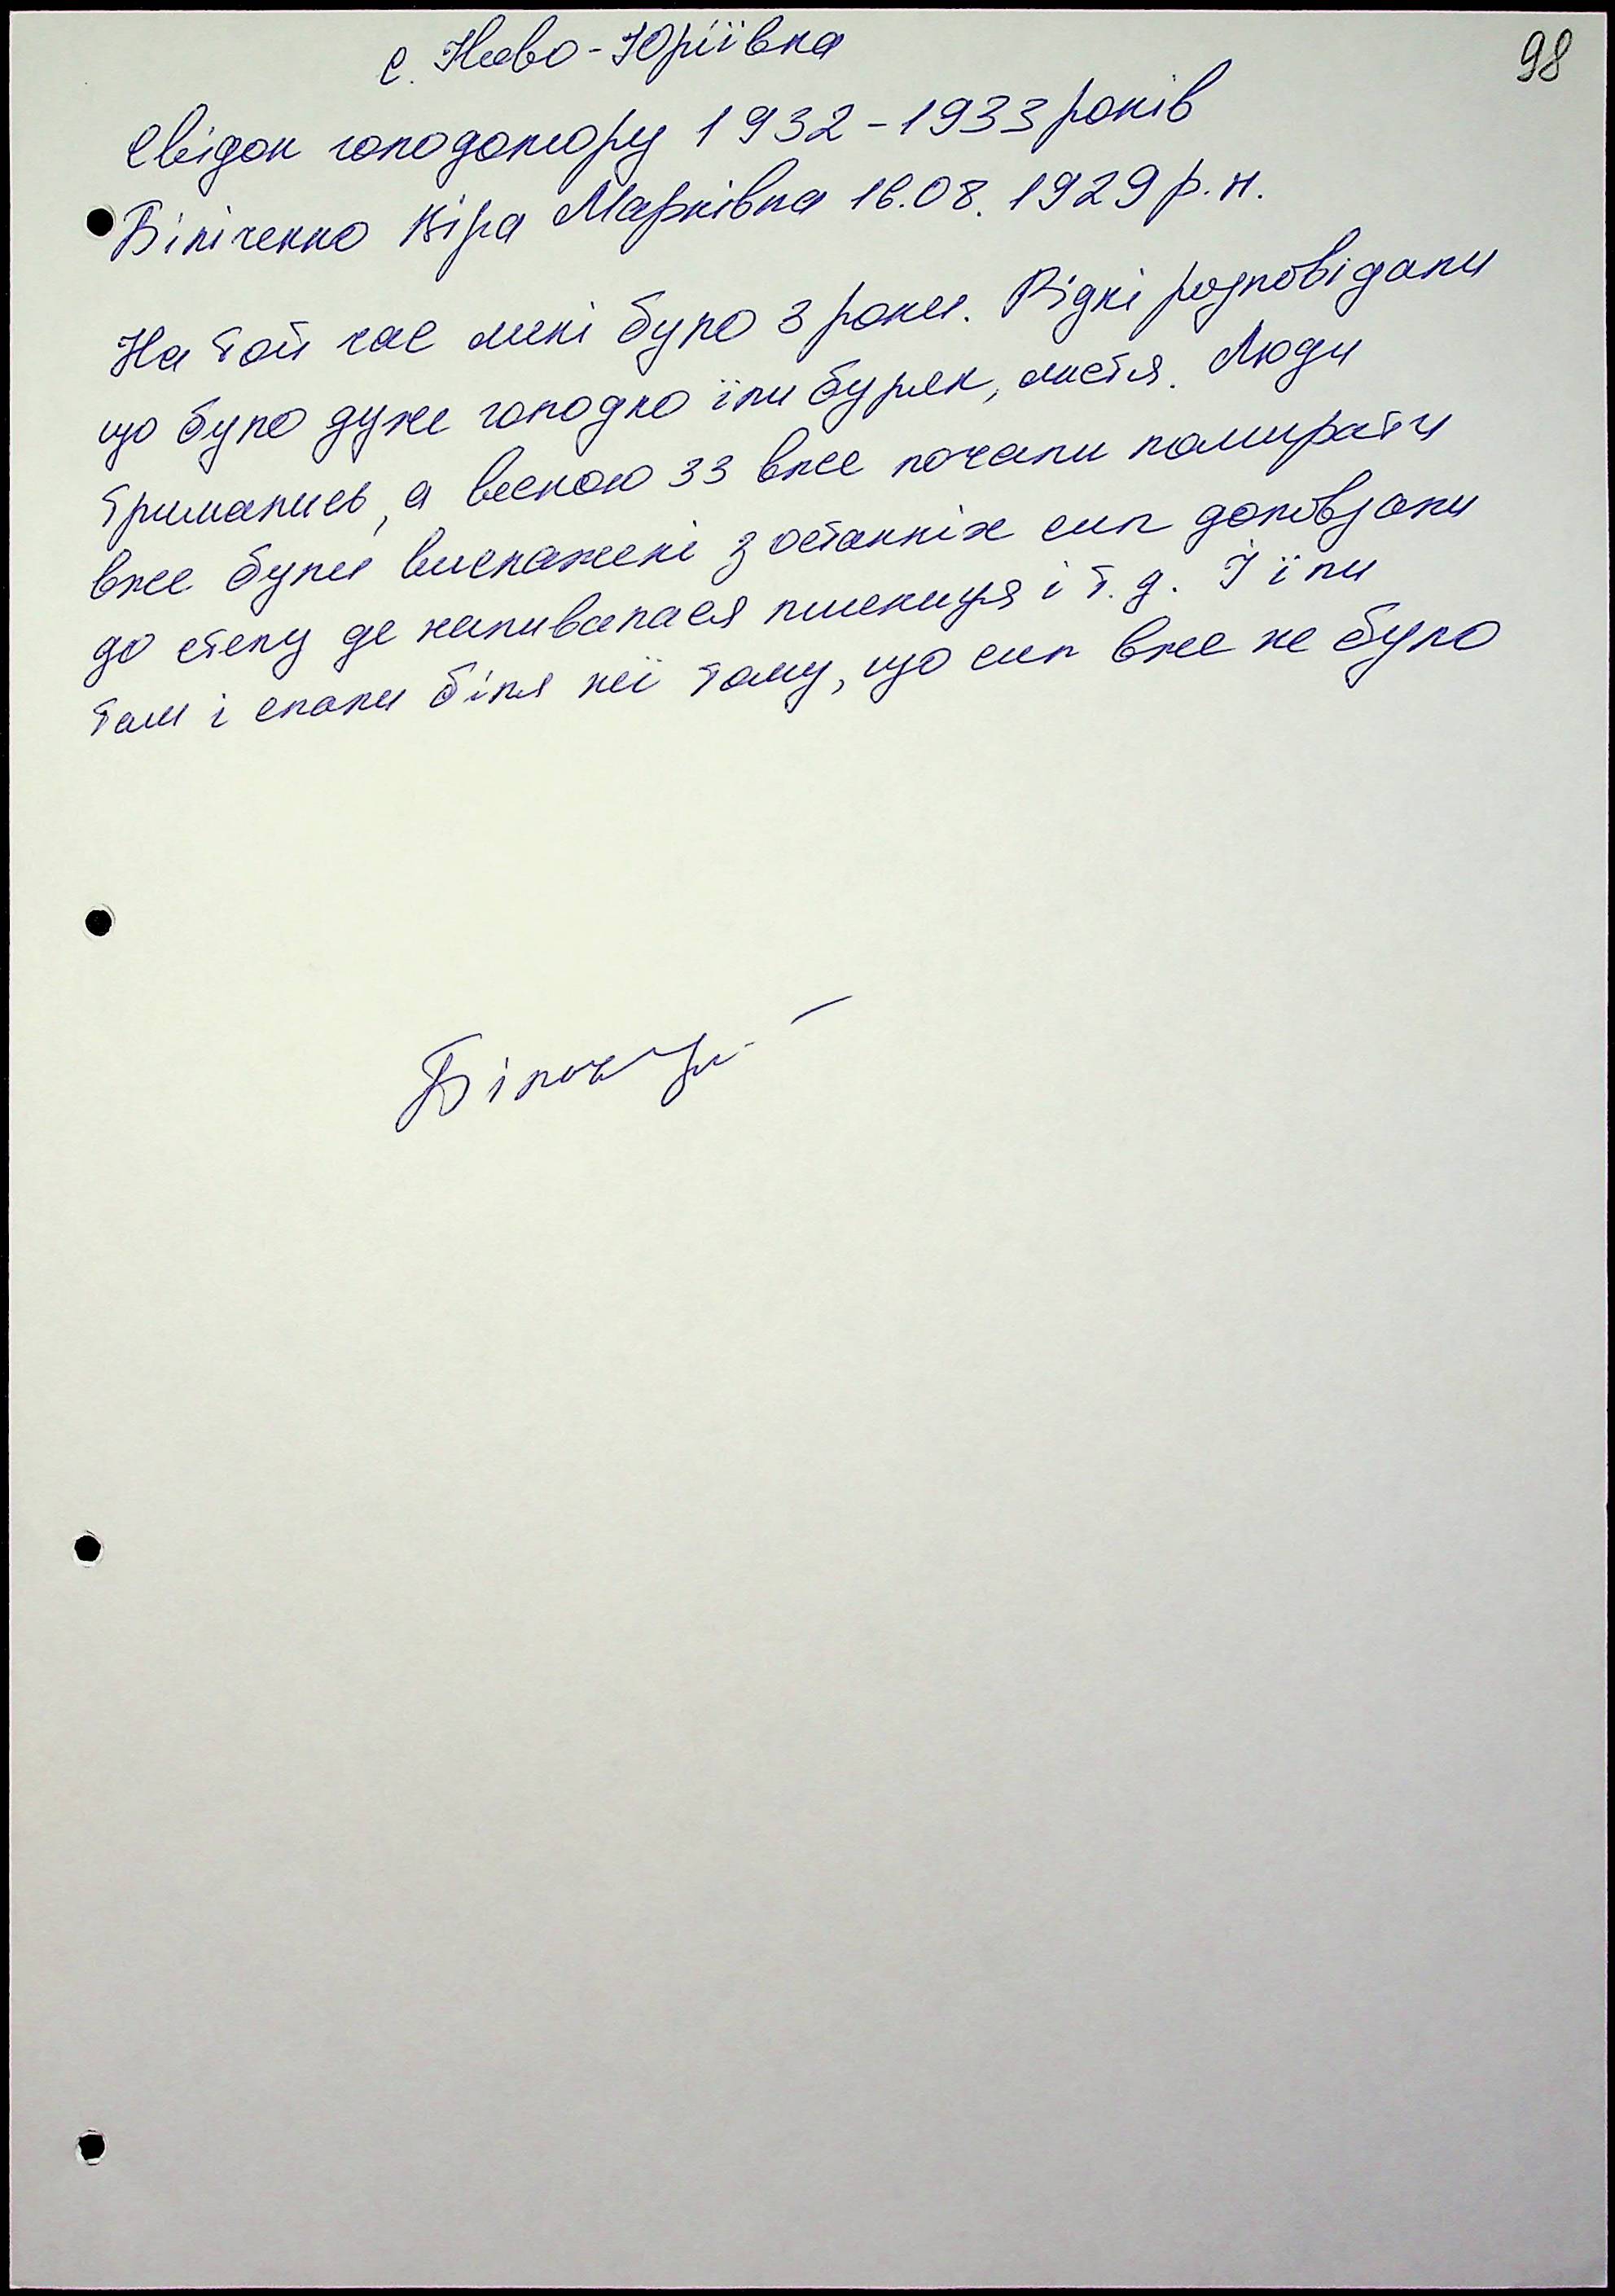 98
с. Ново-Юріївка
Свідок голодомору 1932-1933 років
Біліченко Віра Марківна 16.08.1929 р.н.
На той час мені було 3 роки. Рідні розповідали
що було дуже голодно їли буряк, листя. Люди
тримались, а весною 33 вже почали помирати
вже були виснажені з останніх сил доповзали
до степу де наливалася пшениця і т.д. І їли
там і спали біля неї тому, що сил вже не було